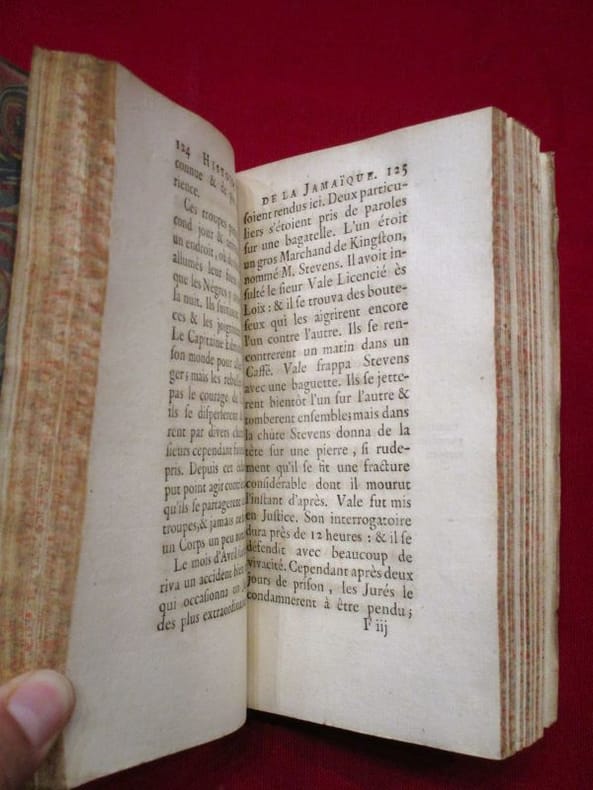 124 HISTO
connue & de
rience.
Ces troupes
cond jour &
un endroit, où
allumés leur
que les Négres y
la nuit. Ils
ces & les
Le Capitaine
son monde pour
ger; mais les
pas le courage de
ils se disperserent
rent par divers
sieurs cependant
pris. Depuis cet
put point agir
qu'ils se partagerent
troupes, & jamais
un Corps un peu
Le mois d'Avril
riva un accident bien
qui occasionna un
des plus extraordina
DE LA JAMAÏQUE. 125
ſoient rendus ici. Deux particu-
liers s'étoient pris de paroles
ſur une bagatelle. L'un étoit
un gros Marchand de Kingſton,
nommé M. Stevens. Il avoit in-
ſulté le ſieur Vale Licencié ès
Loix : & il ſe trouva des boute-
feux qui les aigrirent encore
l'un contre l'autre. Ils ſe ren-
contrerent un matin dans un
Caffé. Vale frappa Stevens
avec une baguette. Ils ſe jette-
rent bientôt l'un ſur l'autre &
tomberent enſemble; mais dans
la chûte Stevens donna de la
tête ſur une pierre, ſi rude-
ment qu'il ſe fit une fracture
conſidérable dont il mourut
l'inſtant d'après. Vale fut mis
en Juſtice. Son interrogatoire
dura près de 12 heures : & il ſe
défendit avec beaucoup de
vivacité. Cependant après deux
jours de priſon, les Jurés le
condamnerent à être pendu;
F iij